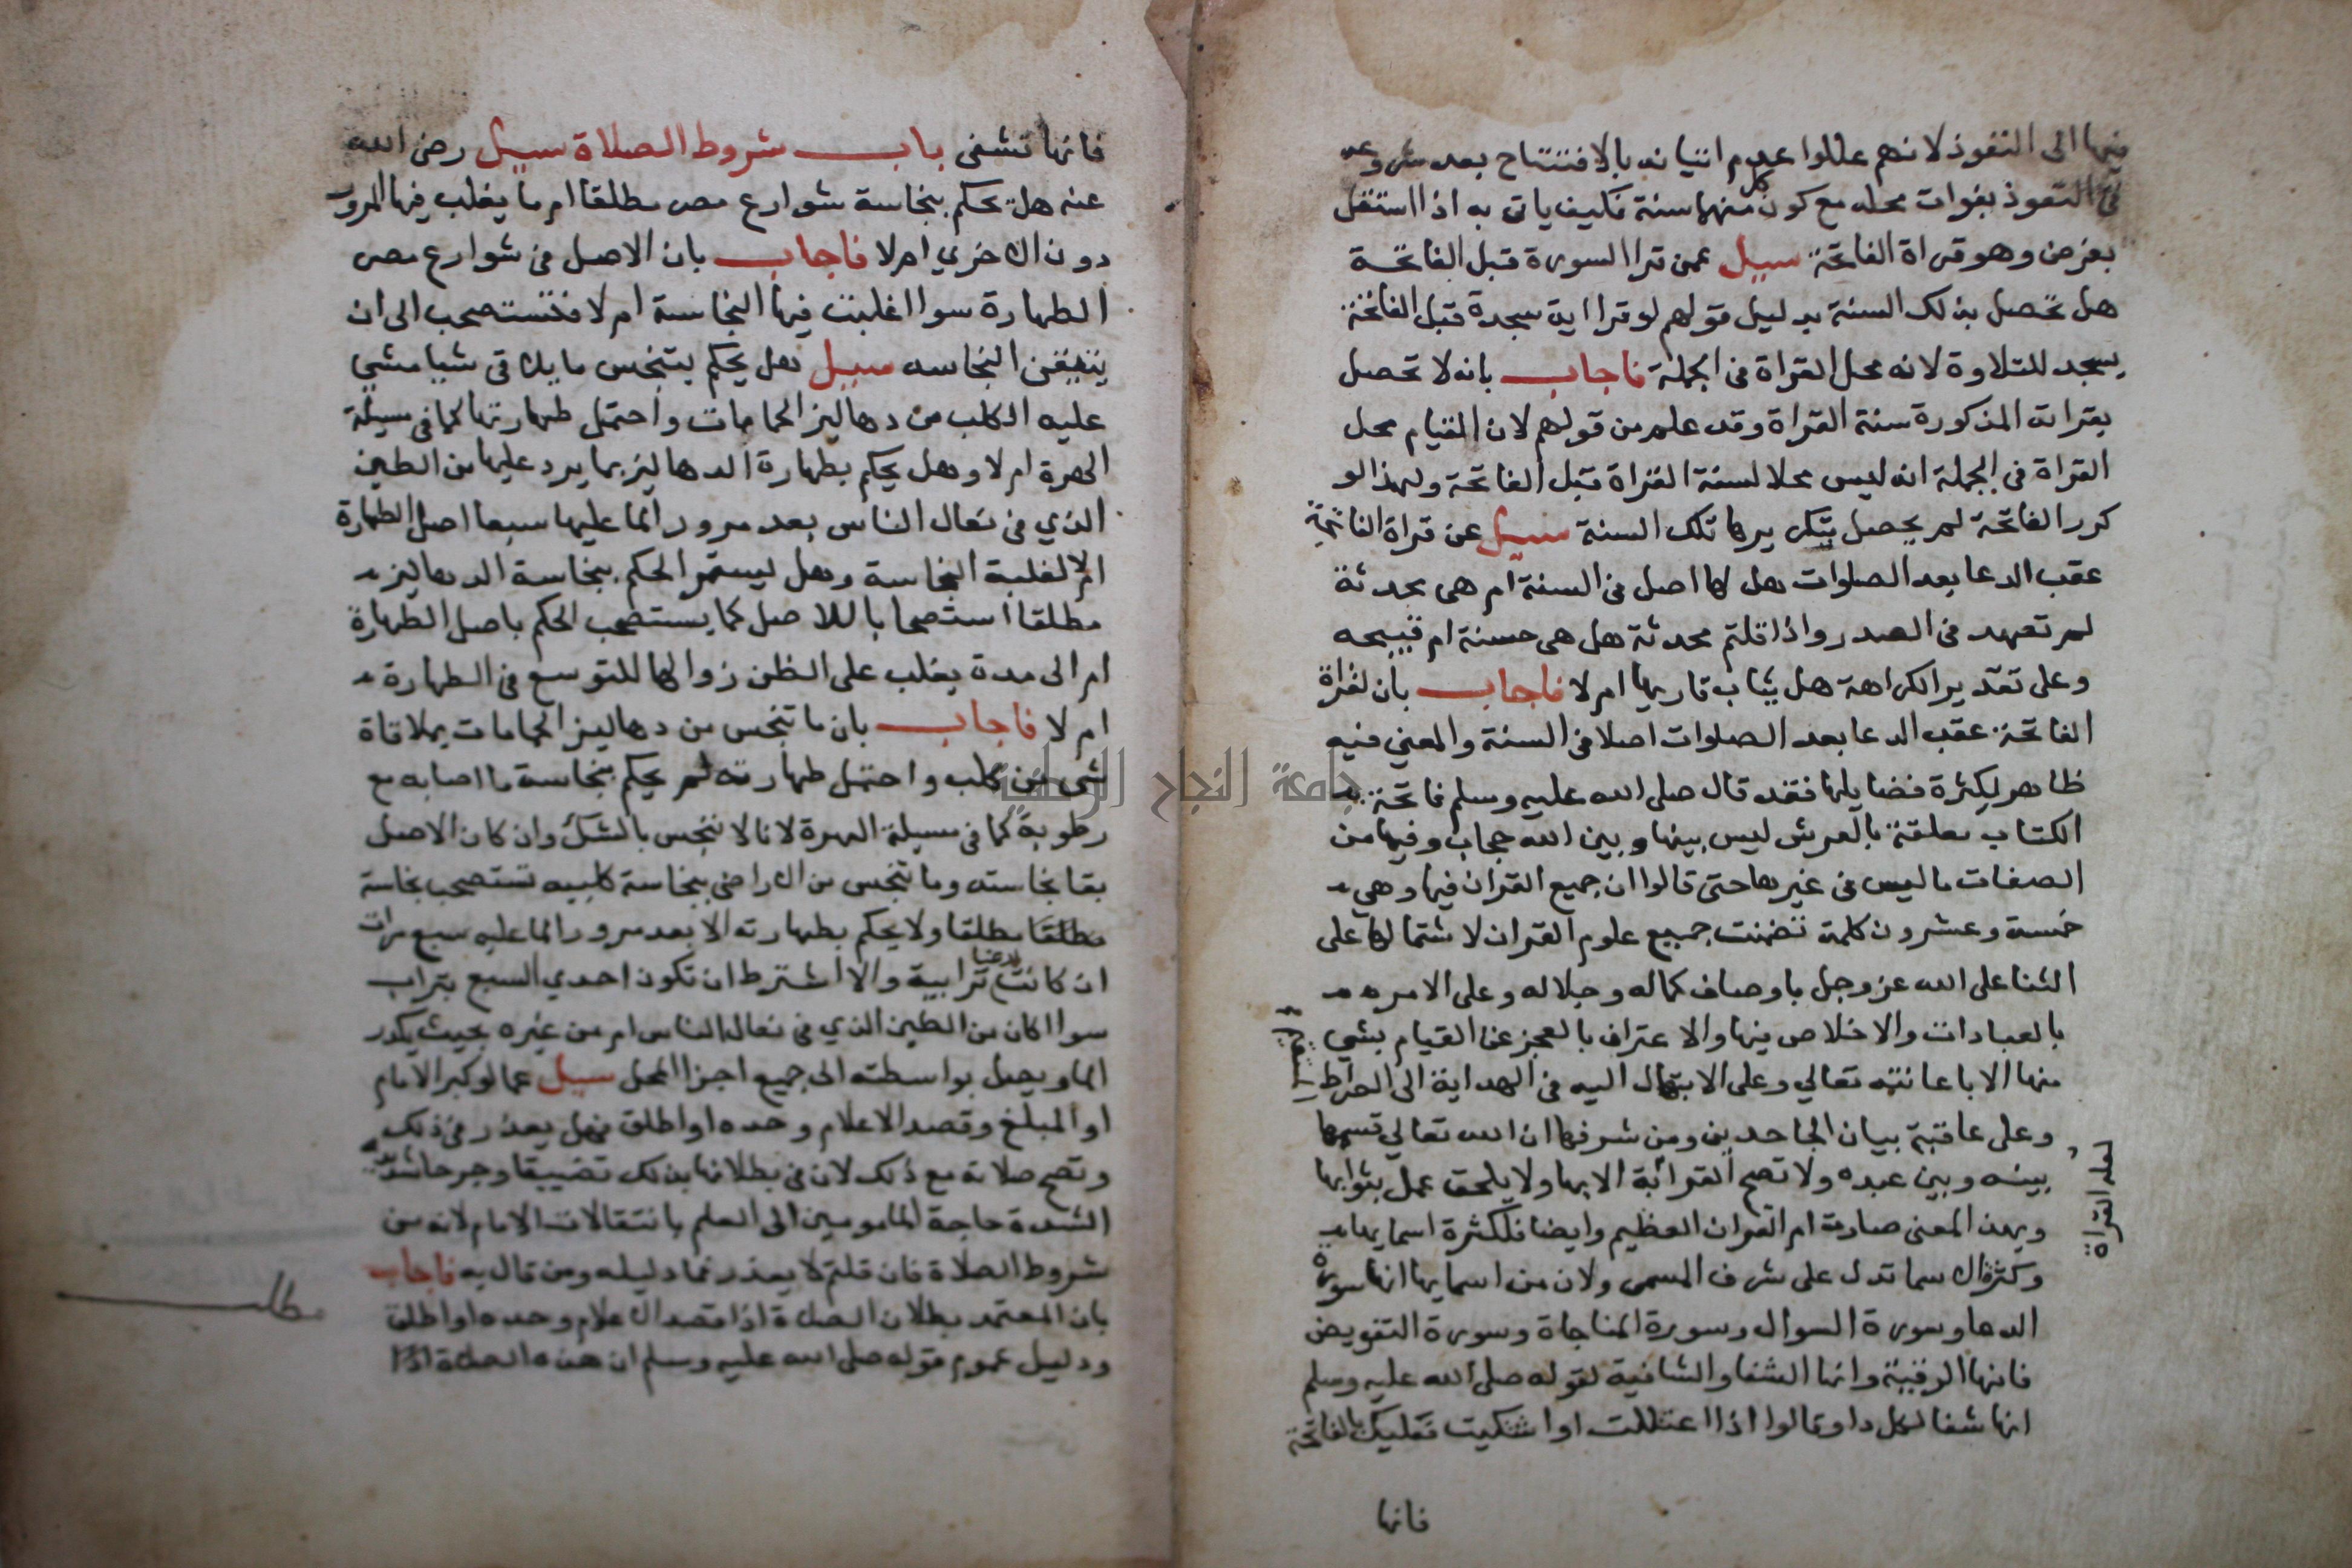 فيها الى التعوذ لانهم عللوا عدم اتيانه بالافتتاح بعد شروعه
في التعوذ بفوات محله مع كون كل منهما سنة فكيف ياتي به اذا اشتغل
بفرض وهو قراة الفاتحة سيل عمن قرا السورة قبل الفاتحة
هل تحصل بذلك السنة بدليل قولهم لو قرا اية سجدة قبل الفاتحة
يسجد للتلاوة لانه محل القراة في الجملة فاجاب بانه لا تحصل
بقراته المذكورة سنة القراة وقد علم من قولهم لان القيام محل
القراة في الجملة انه ليس محلا لسنة القراة قبل الفاتحة ولهذا لو
كرر الفاتحة لم يحصل بتكريرها تلك السنة سيل عن قراة الفاتحة
عقب الدعا بعد الصلوات هل لها اصل في السنة ام هي محدثة
لم تعهد في الصدر واذا قلتم محدثة هل هي حسنة ام قبيحه
وعلى تقدير الكراهة هل يثاب قاريها ام لا فاجاب بان لقراة
الفاتحة عقب الدعا بعد الصلوات اصلا في السنة والمعني فيه
ظاهر لكثرة فضايلها فقد قال صلى الله عليه وسلم فاتحة
الكتاب معلقة بالعرش ليس بينها وبين الله حجاب وفيها من
الصفات ما ليس في غيرها حتى قالوا ان جميع القران فيها وهي
خمسة وعشرون كلمة تضمنت جميع علوم القران لاشتمالها على
الثنا على الله عز وجل باوصاف كماله وجلاله وعلى الامر
بالعبادات والاخلاص فيها والاعتراف بالعجز عن القيام بشي
منها الا باعانته تعالي وعلى الابتهال اليه في الهداية الى الصراط
المستقيم
وعلى عاقبة بيان الجاحدين ومن شرفها ان الله تعالي قسمها
بينه وبين عبده ولا تصح القرابة الا بها ولا يلحق عمل بثوابها
لعله القراة
وبهذا المعنى صارت ام القران العظيم وايضا فلكثرة اسمايها
وكثرة الاسما تدل على شرف المسمى ولان من اسمايها انها سورة
الدعا وسورة السوال وسورة المناجاة وسورة التفويض
فانها الرقية وانها الشفا والشافية لقوله صلى الله عليه وسلم
انها شفا لكل دا وقالوا اذا اعتللت او اشتكيت فعليك بالفاتحة
فانها
فانها تشفى باب شروط الصلاة سيل رضى الله
عنه هل يحكم بنجاسة شوارع مصر مطلقا ام ما يغلب فيها المرور
دون الاخري ام لا فاجاب بان الاصل في شوارع مصر
الطهارة سوا اغلبت فيها النجاسة ام لا فتستصحب الى ان
يتيقن النجاسه سيل هل يحكم بتنجس ما يلاقى شيا مشى
عليه الكلب من دهاليز الحمامات واحتمل طهارتها كما في مسيلة
الهرة ام لا وهل يحكم بطهارة الدهاليز بما يرد عليها من الطين
الذي في نعال الناس بعد مرور الما عليها سبعا اصل الطهارة
ام لا لغلبة النجاسة وهل يستمر الحكم بنجاسة الدهاليز
مطلقا استصحابا للاصل كما يستصحب الحكم باصل الطهارة
ام الى مدة يغلب على الظن زوالها للتوسع في الطهارة
ام لا فاجاب بان ما تنجس من دهاليز الحمامات بملاقاة
شى من كلب واحتمل طهارته لم يحكم بنجاسة ما اصابه مع
رطوبة كما في مسيلة الهرة لانا لا ننجس بالشك وان كان الاصل
بقا نجاسته وما تنجس من الاراضي بنجاسة كلبيه تستصحب نجاسة
مطلقا مطلقا ولا يحكم بطهارته الا بعد مرور الما عليه سبع مرات
ان كانت ترابية والا اشترط ان تكون احدي السبع بتراب
سوا اكان من الطين الذي في نعال الناس ام من غيره بحيث يكدر
الما ويصل بواسطته الى جميع اجزا المحل سيل عما لو كبر الامام
او المبلغ وقصد الاعلام وحده او اطلق فهل يعذر في ذلك
وتصح صلاته مع ذلك لان في بطلانها بذلك تضييقا وحرجا
الشدة حاجة المامومين الى العلم بانتقالات الامام لانه من
شروط الصلاة فان قلتم لا يعذر فما دليله ومن قال به فاجاب
مطلب
بان المعتمد بطلان الصلاة اذا قصد الاعلام وحده او اطلق
ودليل عموم قوله صلى الله عليه وسلم ان هذه الصلاة
جامعة النجاح الوطنية